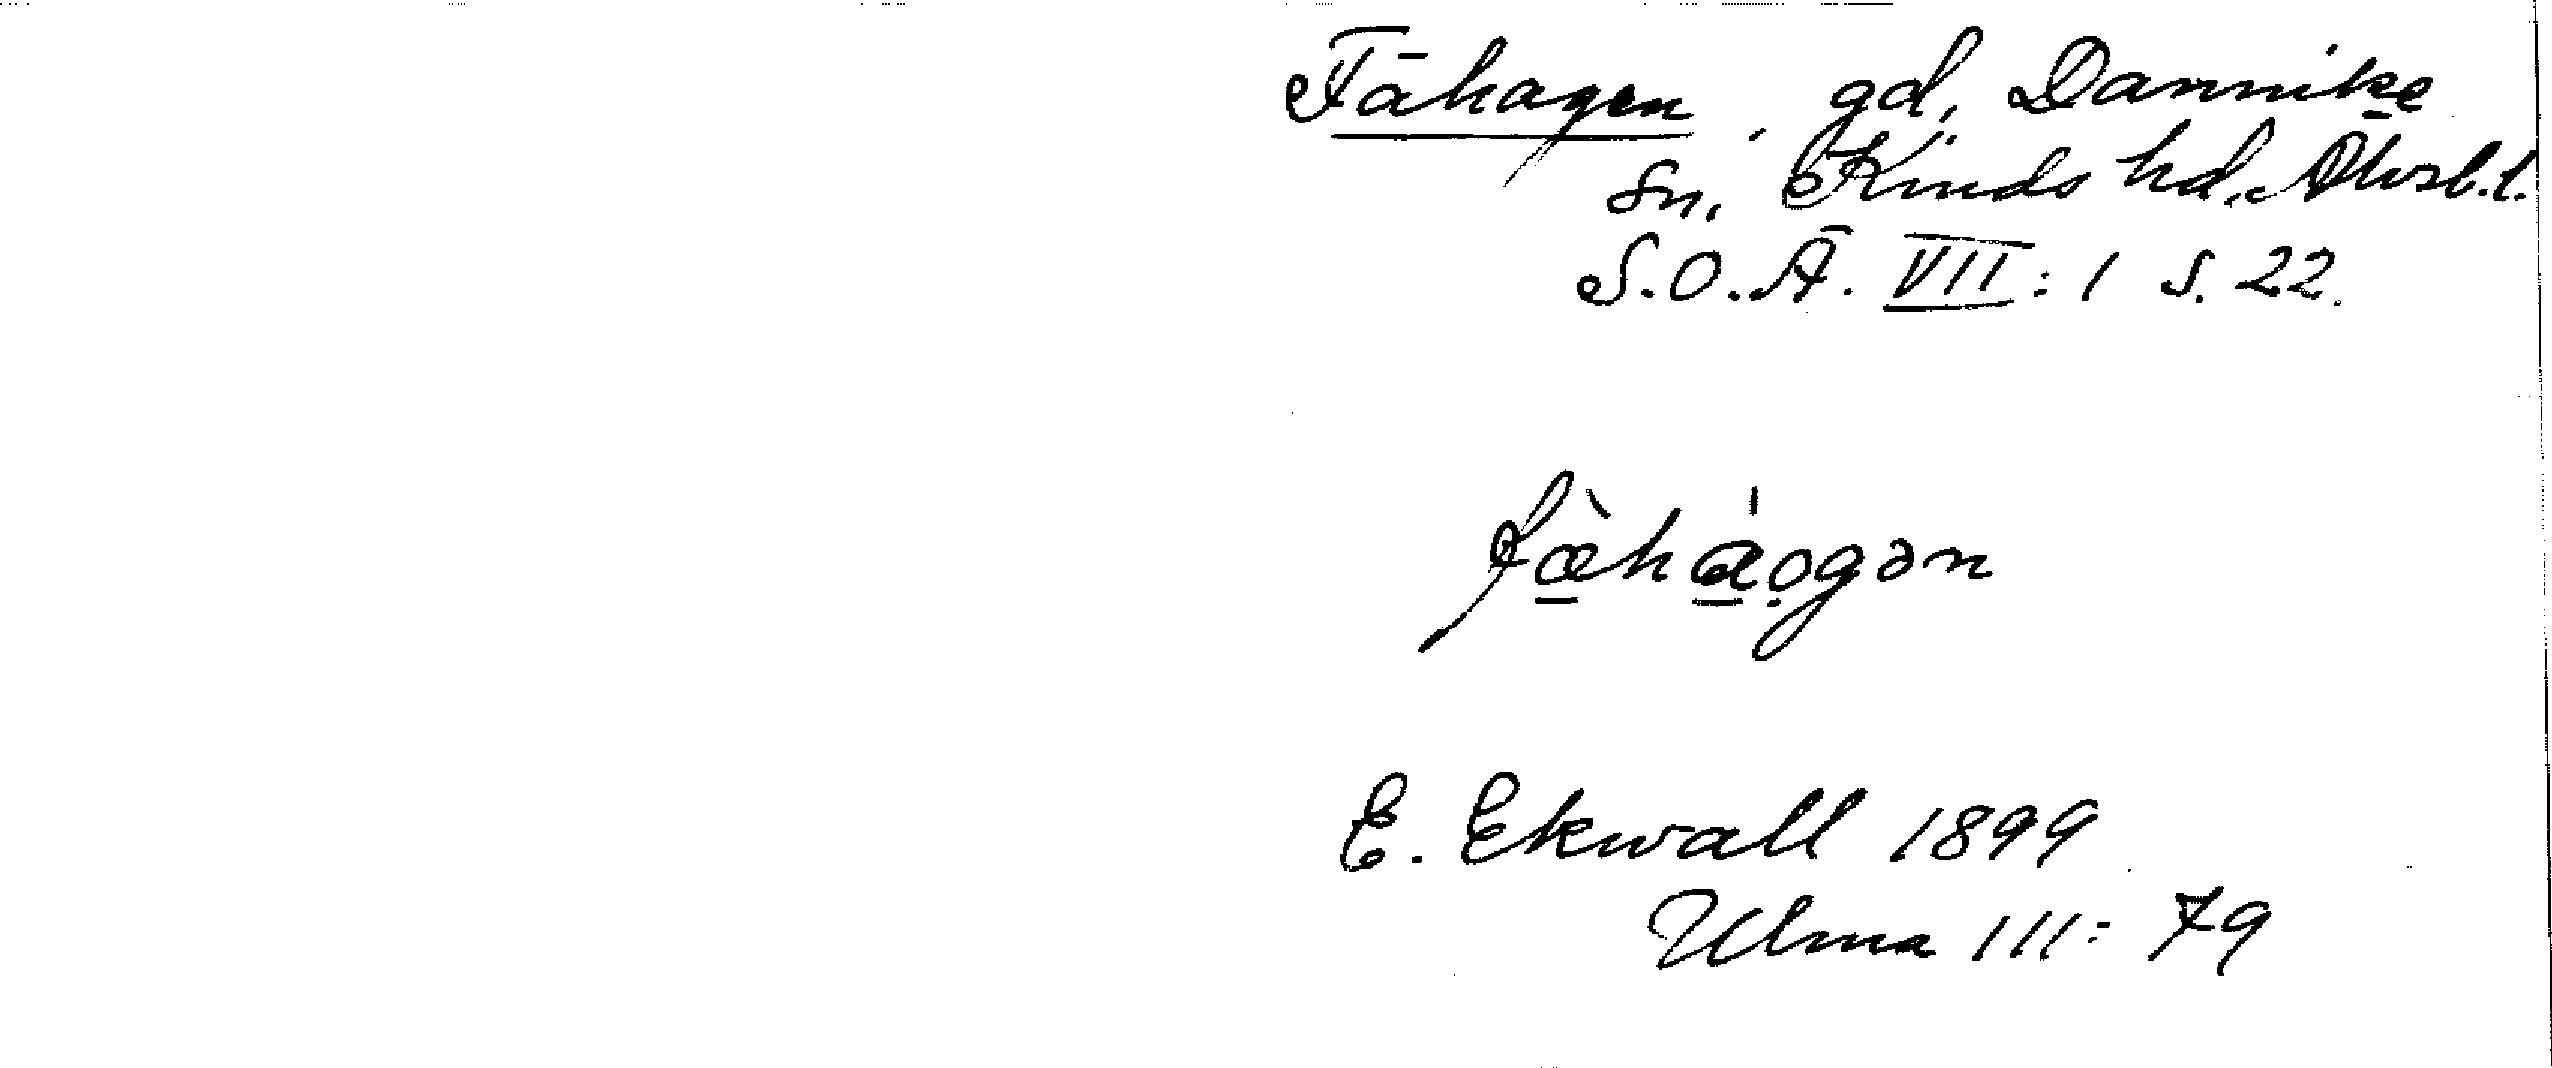 Fähagen, gd, Dannike
sn, Kinds hd, Älvsb.l.
S.O.Ä. VII: 1 s. 22.
fæ̀ha̍ogən
E. Ekwall 1899
Ulma 111: 79